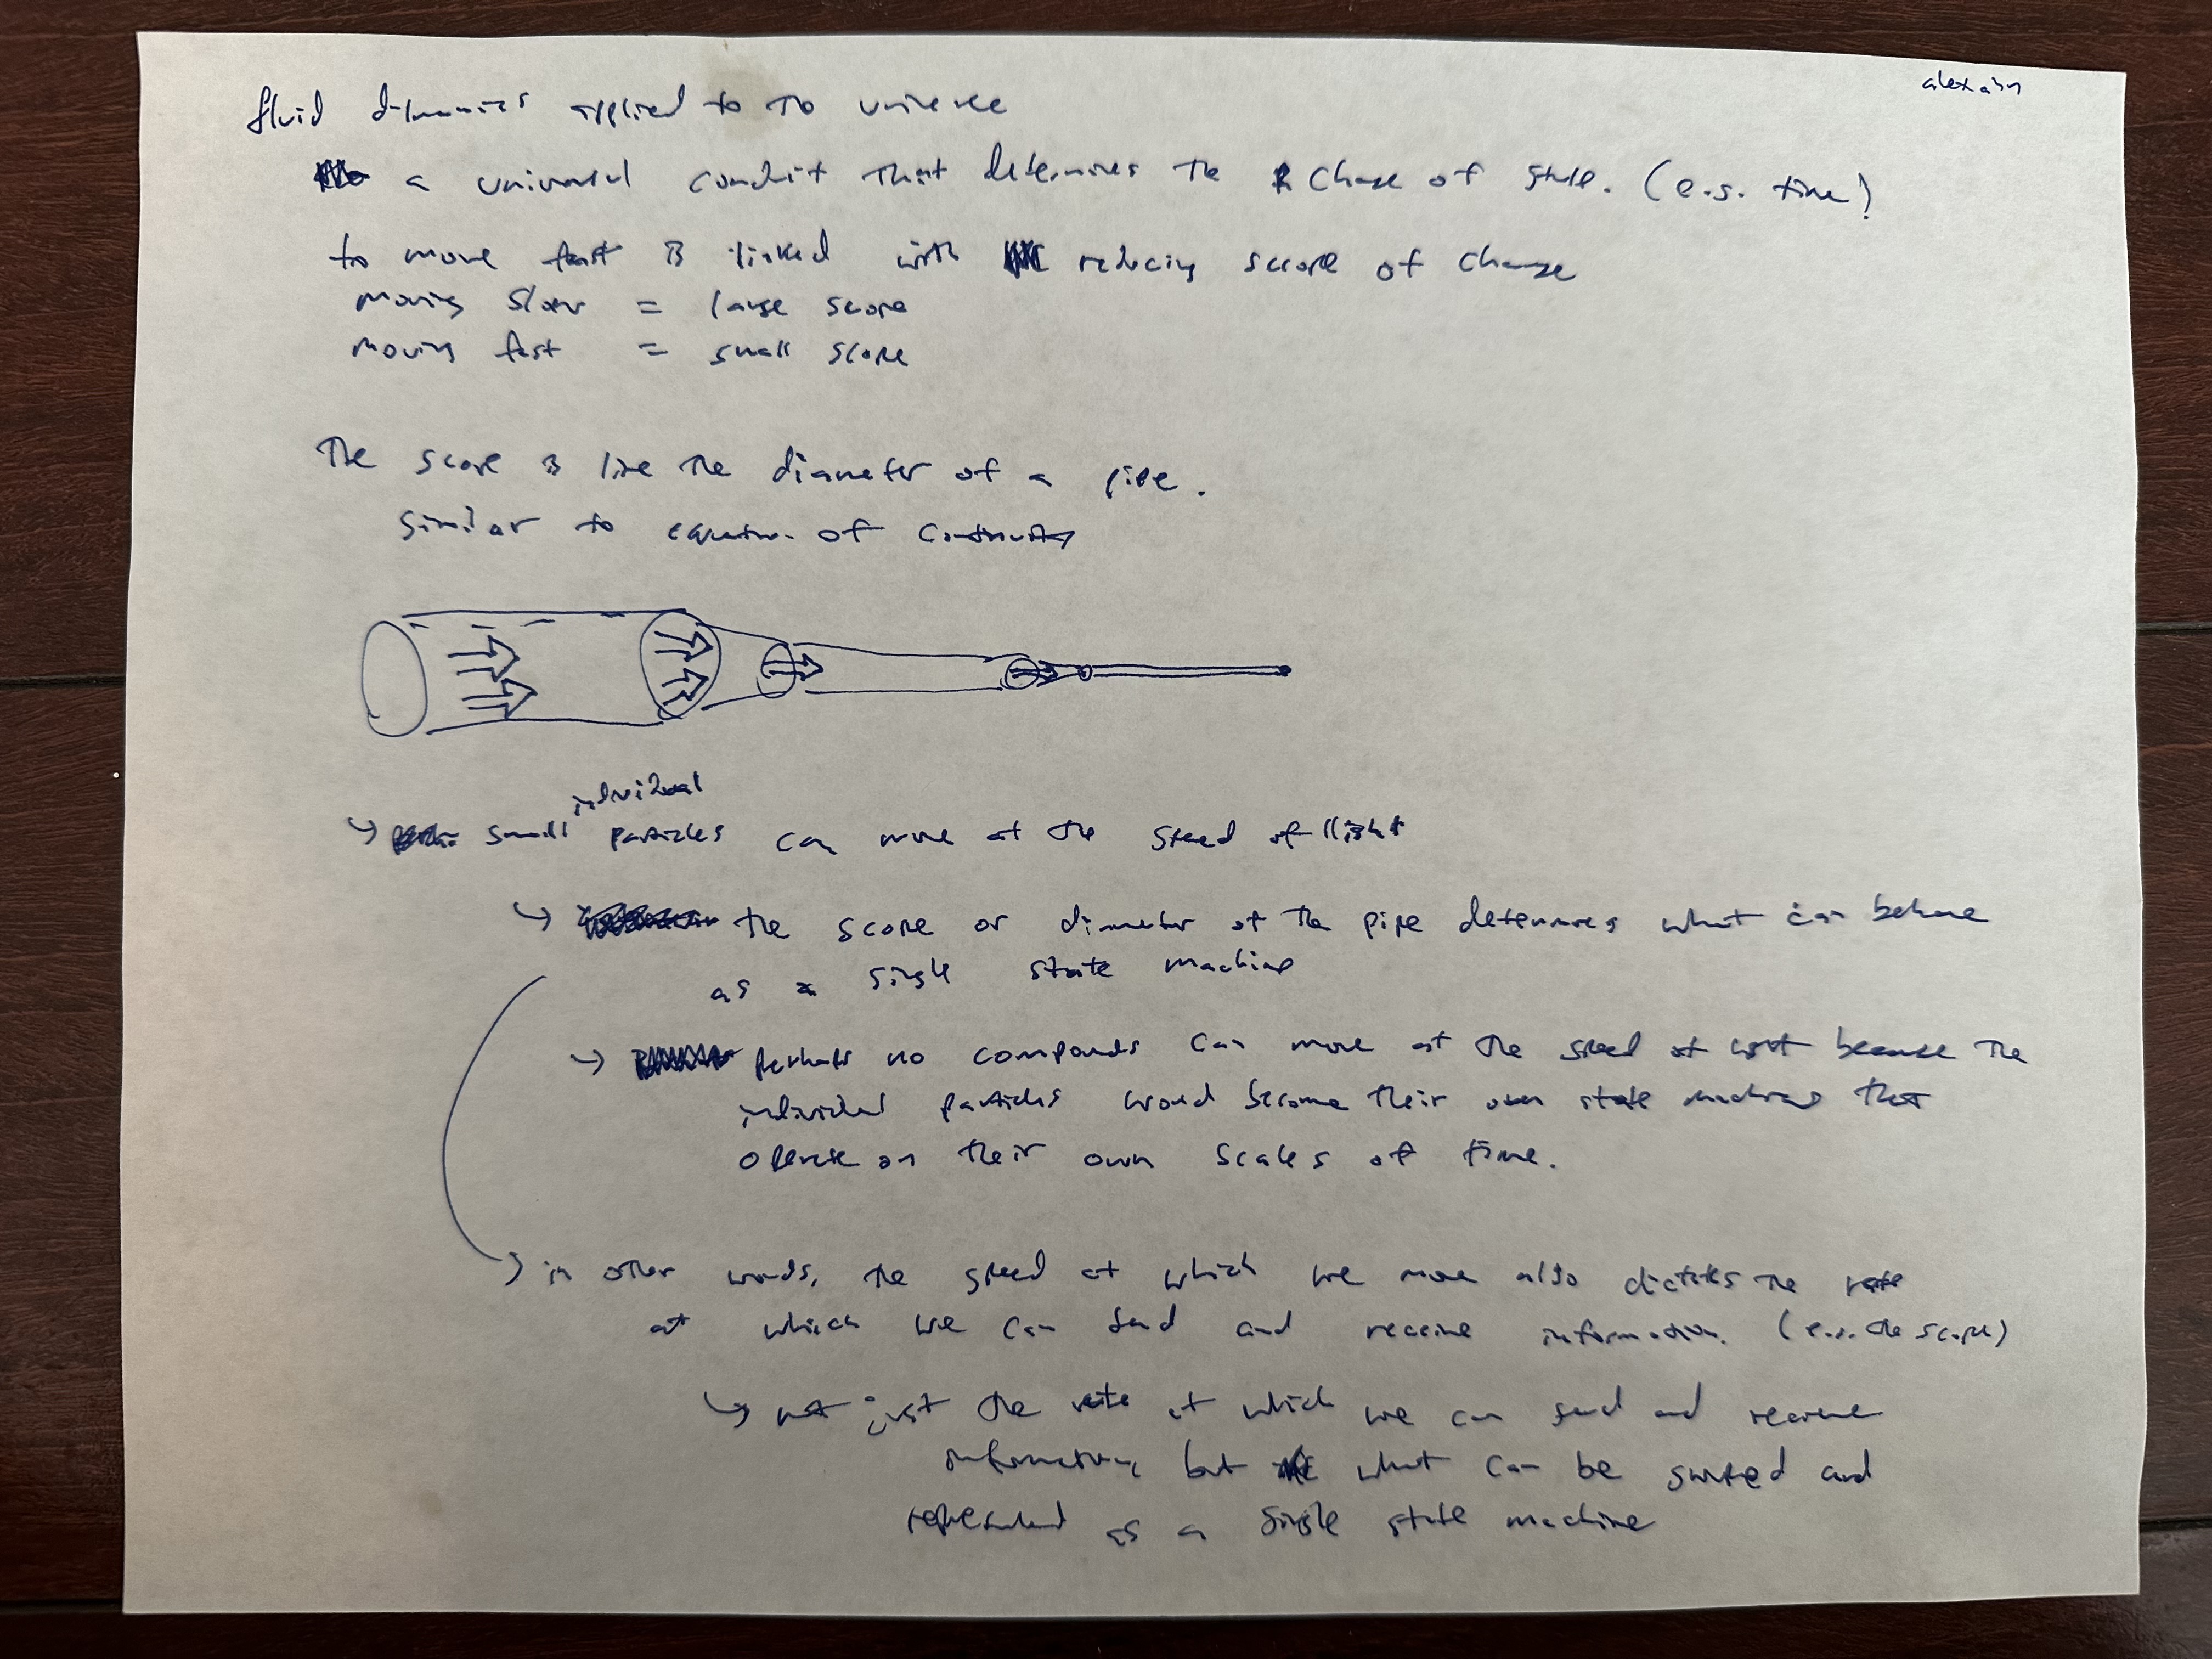 alexahn
fluid dynamics applied to the universe
a universal conduit that determines the change of state. (e.g. time)
to move fast is linked with reducing scope of change
moving slow = large scope
moving fast = small scope
The scope is like the diameter of a pipe.
similar to equation of continuity
individual
small particles can move at the speed of light
the scope or diameter of the pipe determines what can behave
as a single state machine
perhaps no compounds can move at the speed of light because the
individual particles would become their own state machines that
operate on their own scales of time.
in other words, the speed at which we move also dictates the rate
at which we can send and receive information. (e.g. the scope)
not just the rate at which we can send and receive
information, but what can be and
represented as a single state machine